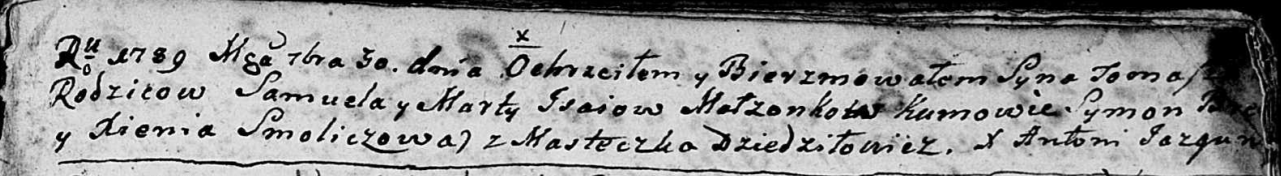 Ru 1789 Mca 7bra 30. dnia Ochrzciłem y Bierzmowałem Syna Tomasz
Rodzicow Samuela y Marty Isaiow Małzonkow Kumowie Symon
y Xienia Smoliczowa) z Masteczka Dziedziłowicz. X Antoni Jazgun